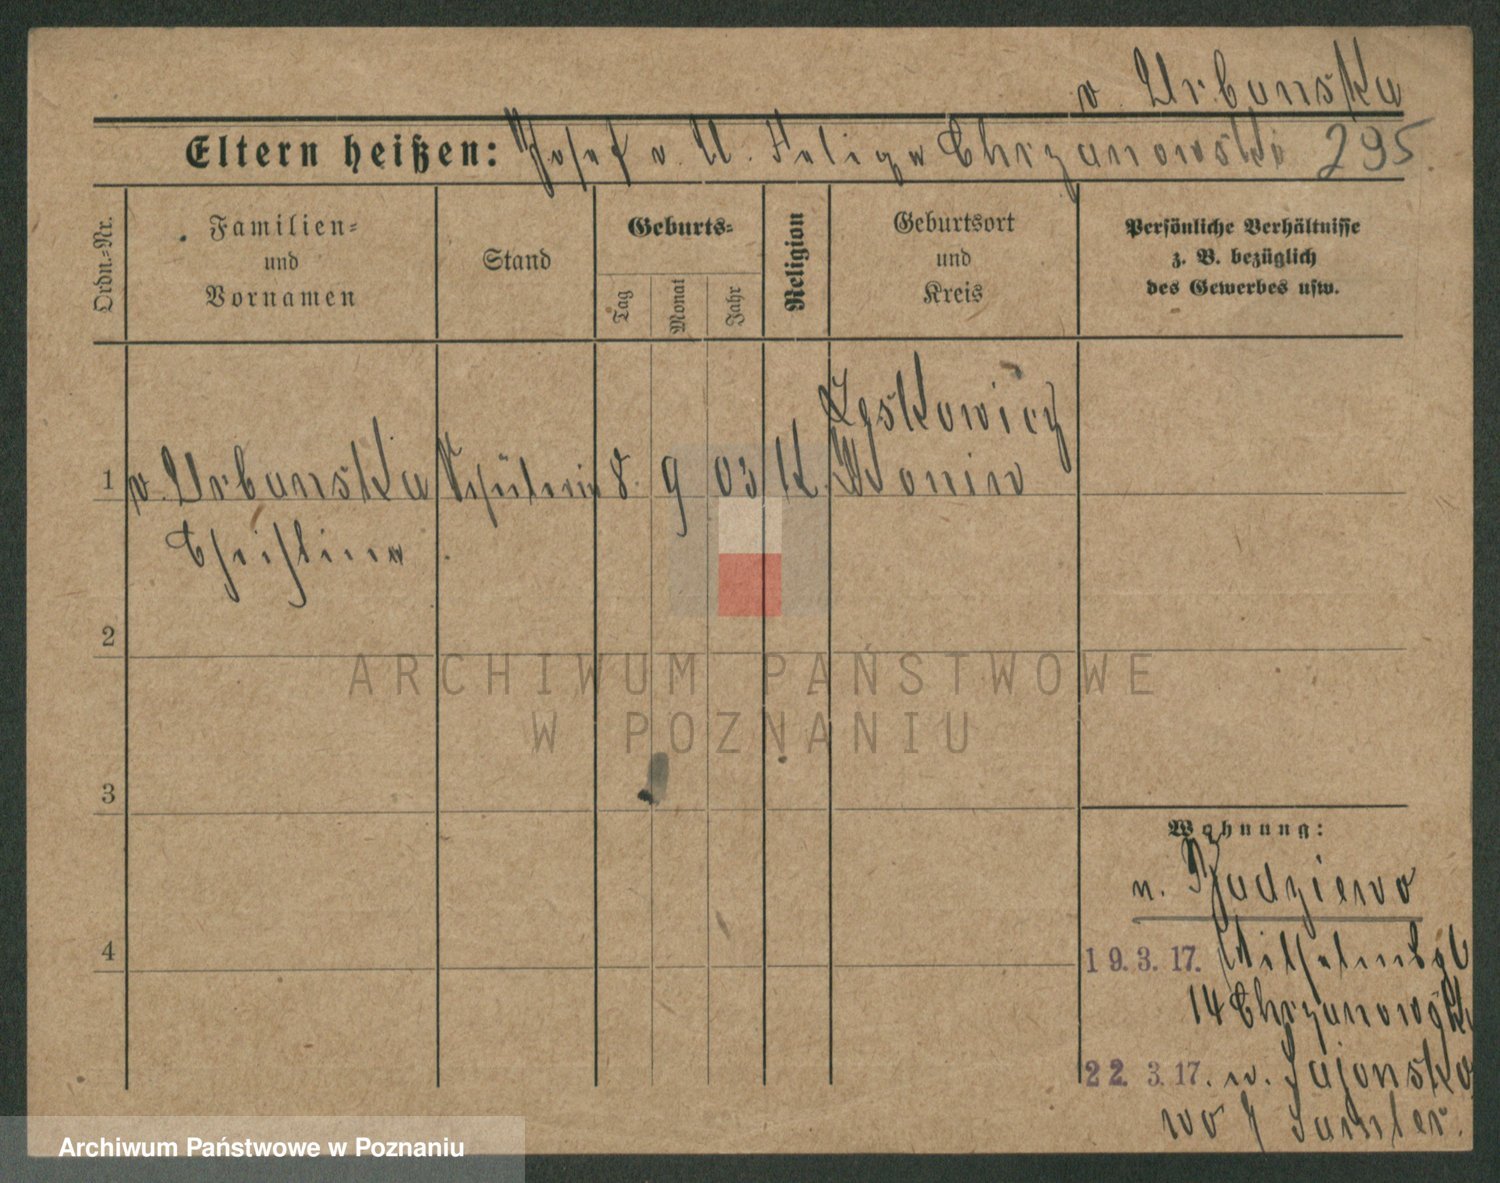 v. Urbanska
Eltern heißen: Josef v. U. Feliga Chrzanowski 295
Ordn.-Nr.
Familien-
und
Vornamen
Stand
Geburts-
Tag
Monat
Jahr
Religion
Geburtsort
und
Kreis
Persönliche Verhältnisse
z. B. bezüglich
des Gewerbes usw.
Leskowicz
1 v. Urbanska Schülerin 8. 9 03 K. Konin
Christine
2
ARCHIWUM PAŃSTWOWE
W POZNANIU
3
Wohnung:
n. Radziewo
4
19. 3. 17.
14 Chrzanowski
22. 3. 17. n.
wo Samter.
Archiwum Państwowe w Poznaniu